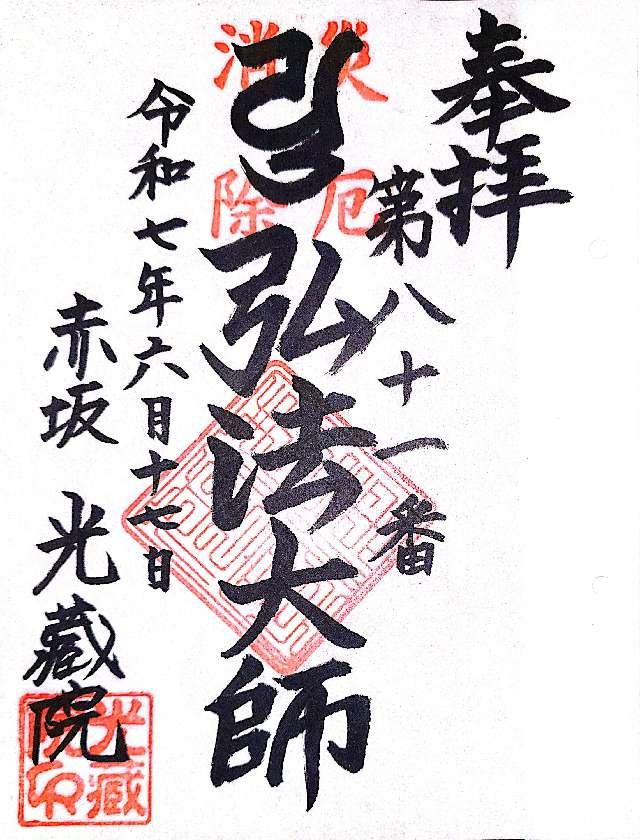 奉拝
第八十一番
災厄
消除
弘法大師
令和七年六月十七日
赤坂 光蔵院
光蔵
院印